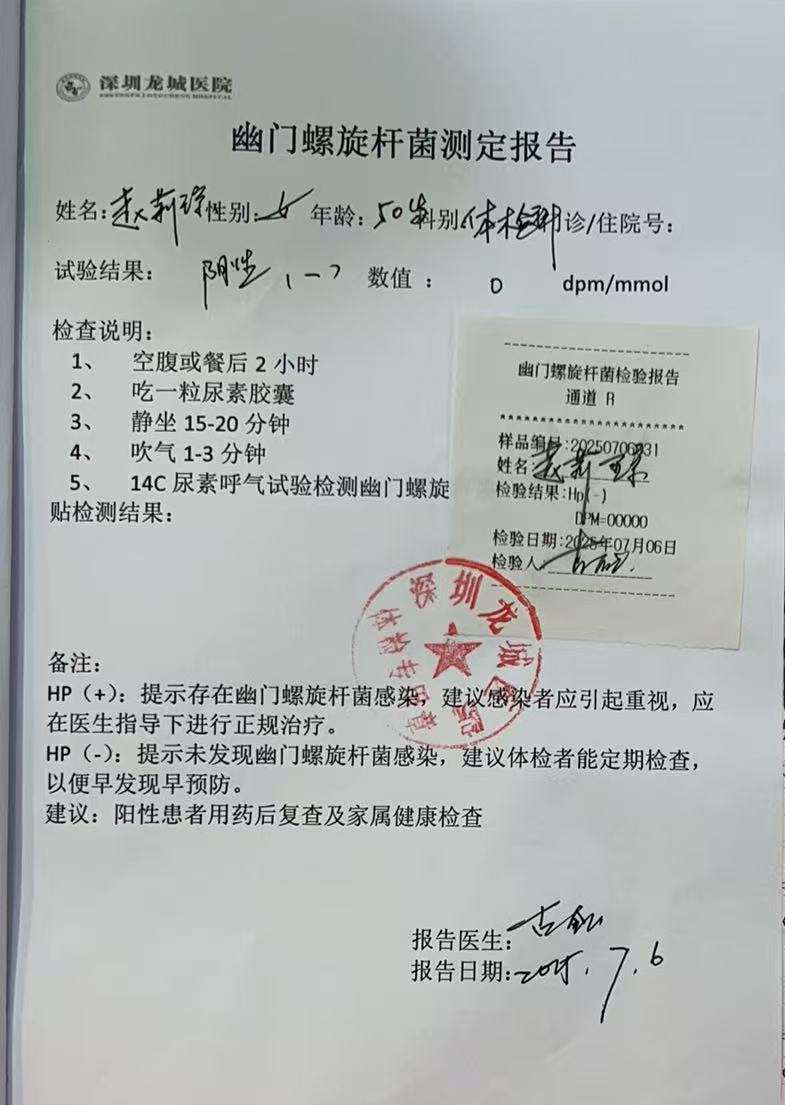 深圳龙城医院
SHENZHEN LONGCHENG HOSPITAL
幽门螺旋杆菌测定报告
姓名:赵莉琼性别:女 年龄:50岁科别:体检科诊/住院号:
试验结果: 阴性(-) 数值 : 0 dpm/mmol
检查说明:
1、 空腹或餐后 2 小时
2、 吃一粒尿素胶囊
3、 静坐 15-20 分钟
4、 吹气 1-3 分钟
5、 14C 尿素呼气试验检测幽门螺旋
贴检测结果:
幽门螺旋杆菌检验报告
通道 R
样品编号:20250706031
姓名 赵莉琼
检验结果:Hp(-)
DPM=00000
检验日期:2025年07月06日
检验人:
深圳龙城医院
体检专用章
备注:
HP(+):提示存在幽门螺旋杆菌感染,建议感染者应引起重视,应
在医生指导下进行正规治疗。
HP(-):提示未发现幽门螺旋杆菌感染,建议体检者能定期检查,
以便早发现早预防。
建议:阳性患者用药后复查及家属健康检查
报告医生:
报告日期:2025.7.6